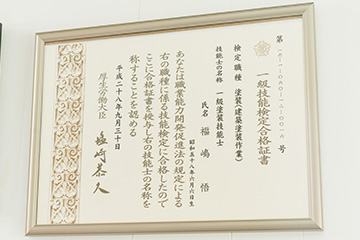 一級技能検定合格証書
検定職種 塗装(建築塗装作業)
技能士の名称 一級塗装技能士
氏名 福嶋 悟
昭和五十八年六月六日生
あなたは職業能力開発促進法の規定による
右の職種に係る技能検定に合格したので
ここに合格証書を授与し右の技能士の名称を
称することを認める
平成二十八年九月三十日
厚生労働大臣
塩崎恭久